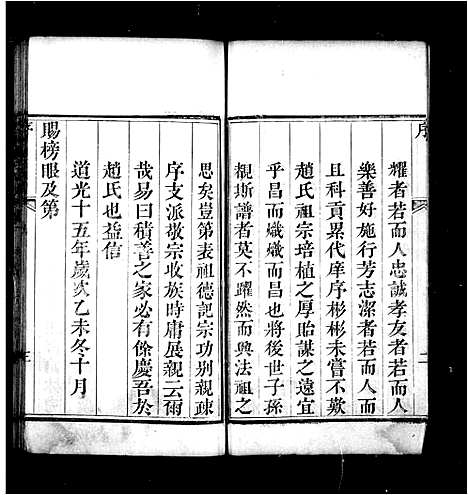 序
耀者若而人忠誠孝友者若而人
樂善好施行芳志潔者若而人而
且科貢累代庠序彬彬未嘗不歎
趙氏祖宗培植之厚貽謀之遠宜
乎昌而熾熾而昌也將後世子孫
覩斯譜者莫不躍然而興法祖之
思矣豈第表祖德記宗功别親疎
序支派敬宗收族時庸展親云爾
哉易曰積善之家必有餘慶吾於
趙氏也益信
道光十五年歲次乙未冬十月
賜榜眼及第
序